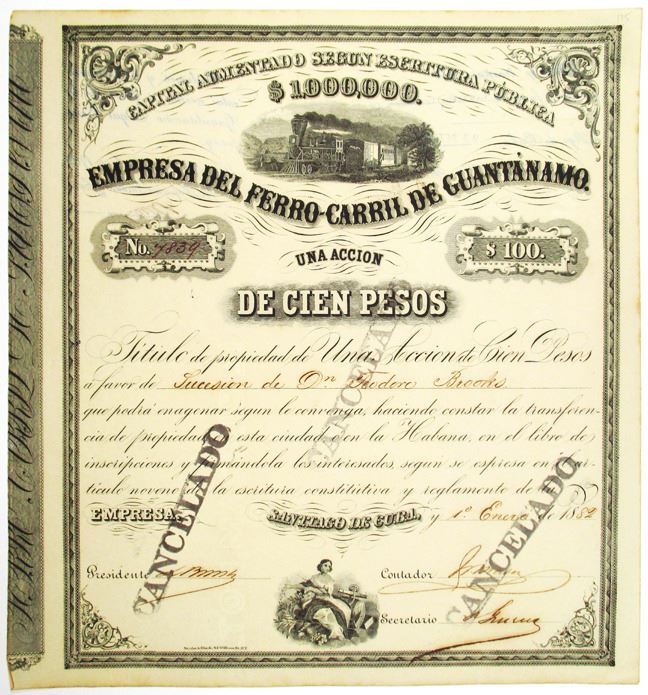 CAPITAL AUMENTADO SEGUN ESCRITURA PÚBLICA
$ 1,000,000.
EMPRESA DEL FERRO-CARRIL DE GUANTÁNAMO.
No. 7839
UNA ACCION
$ 100.
DE CIEN PESOS
Título de propiedad de Una Accion de Cien Pesos
á favor de Sucesion de Dn Teodoro Brooks
que podrá enagenar segun le convenga, haciendo constar la transferen-
cia de propiedad esta ciudad en la Habana, en el libro de
inscripciones y firmándola los interesados, segun se espresa en
tículo noveno de la escritura constitutiva y reglamento de
EMPRESA.
SANTIAGO DE CUBA, y 1º Enero de 1882
Presidente
Contador
Secretario
CANCELADO
CANCELADO
CANCELADO